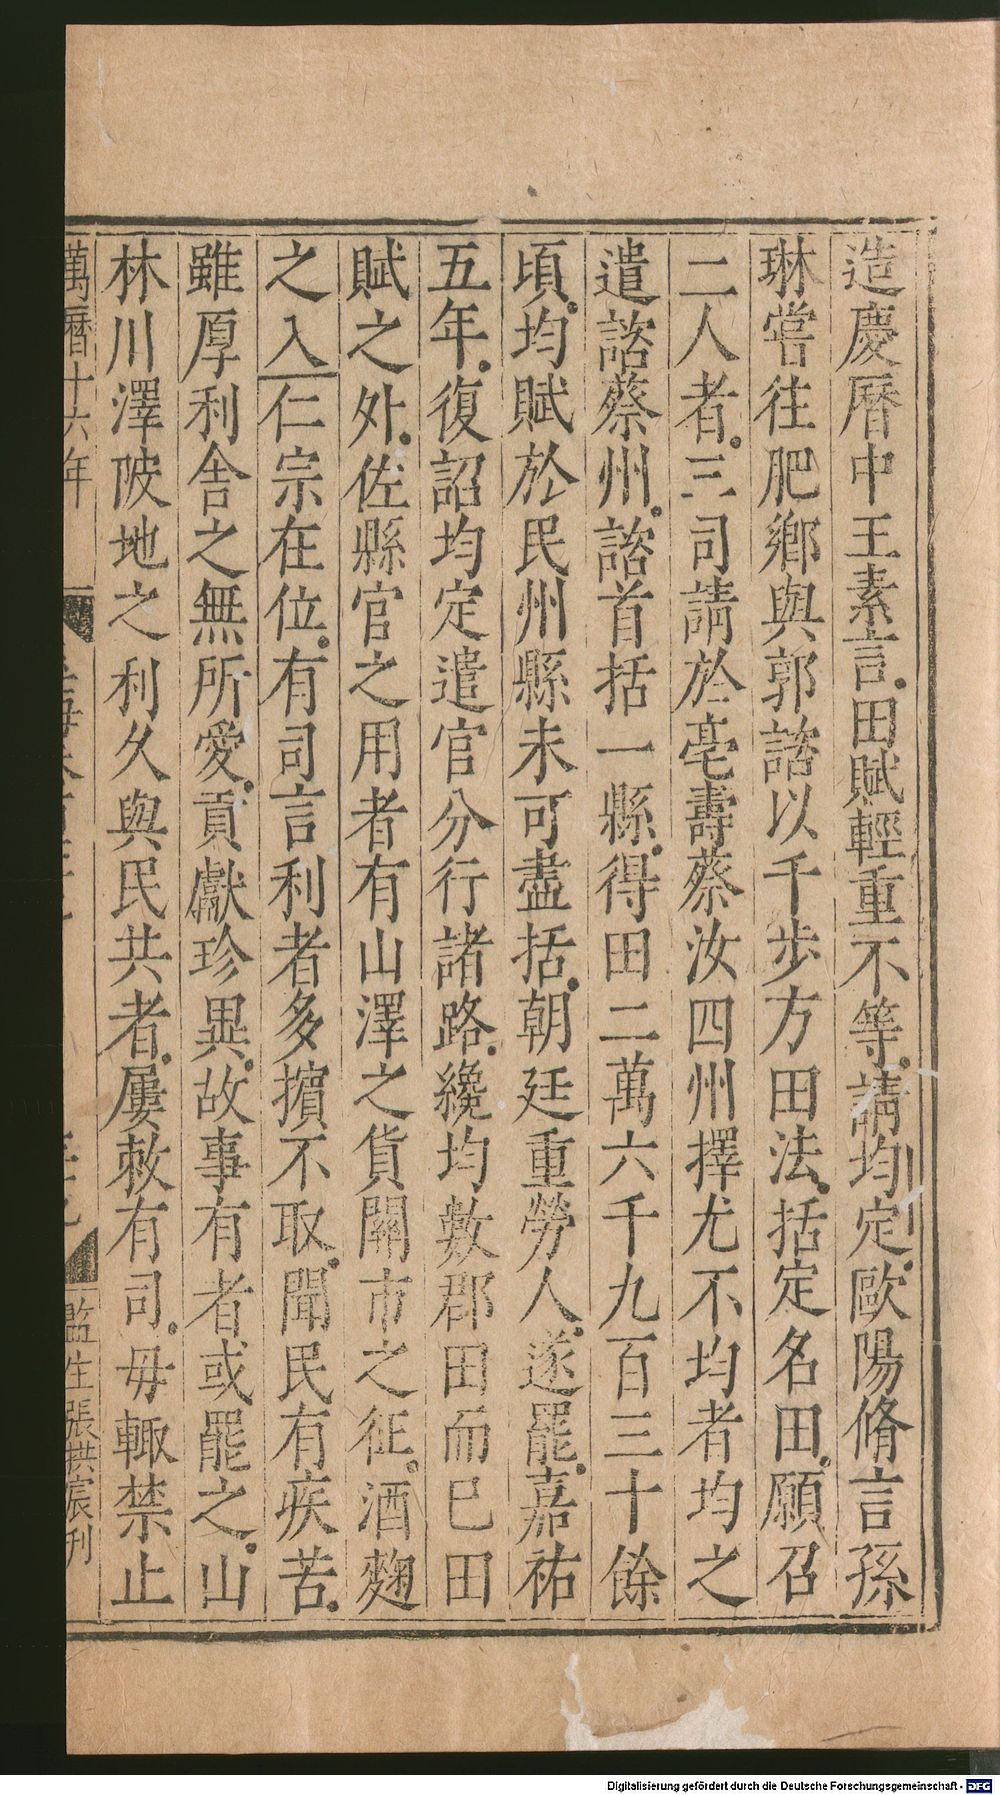 造慶曆中王素言田賦輕重不等請均定歐陽脩言孫
琳嘗往肥鄉與郭諮以千步方田法括定名田願召
二人者三司請於亳壽蔡汝四州擇尤不均者均之
遣諮蔡州諮首括一縣得田二萬六千九百三十餘
頃均賦於民州縣未可盡括朝廷重勞人遂罷嘉祐
五年復詔均定遣官分行諸路纔均數郡田而已田
賦之外佐縣官之用者有山澤之貨關市之征酒麴
之入仁宗在位有司言利者多擯不取聞民有疾苦
雖厚利舍之無所愛貢獻珍異故事有者或罷之山
林川澤陂地之利久與民共者屢敕有司毋輙禁止
萬曆十六年
監生張拱宸刊
Digitalisierung gefördert durch die Deutsche Forschungsgemeinschaft - DFG